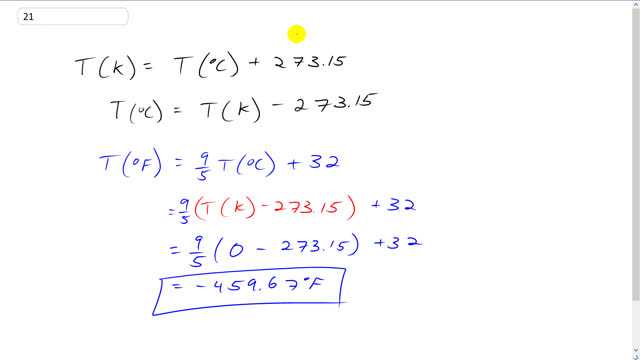 21
T(K) = T(°C) + 273.15
T(°C) = T(K) - 273.15
T(°F) = 9/5 T(°C) + 32
= 9/5 (T(K) - 273.15) + 32
= 9/5 (0 - 273.15) + 32
= -459.67°F